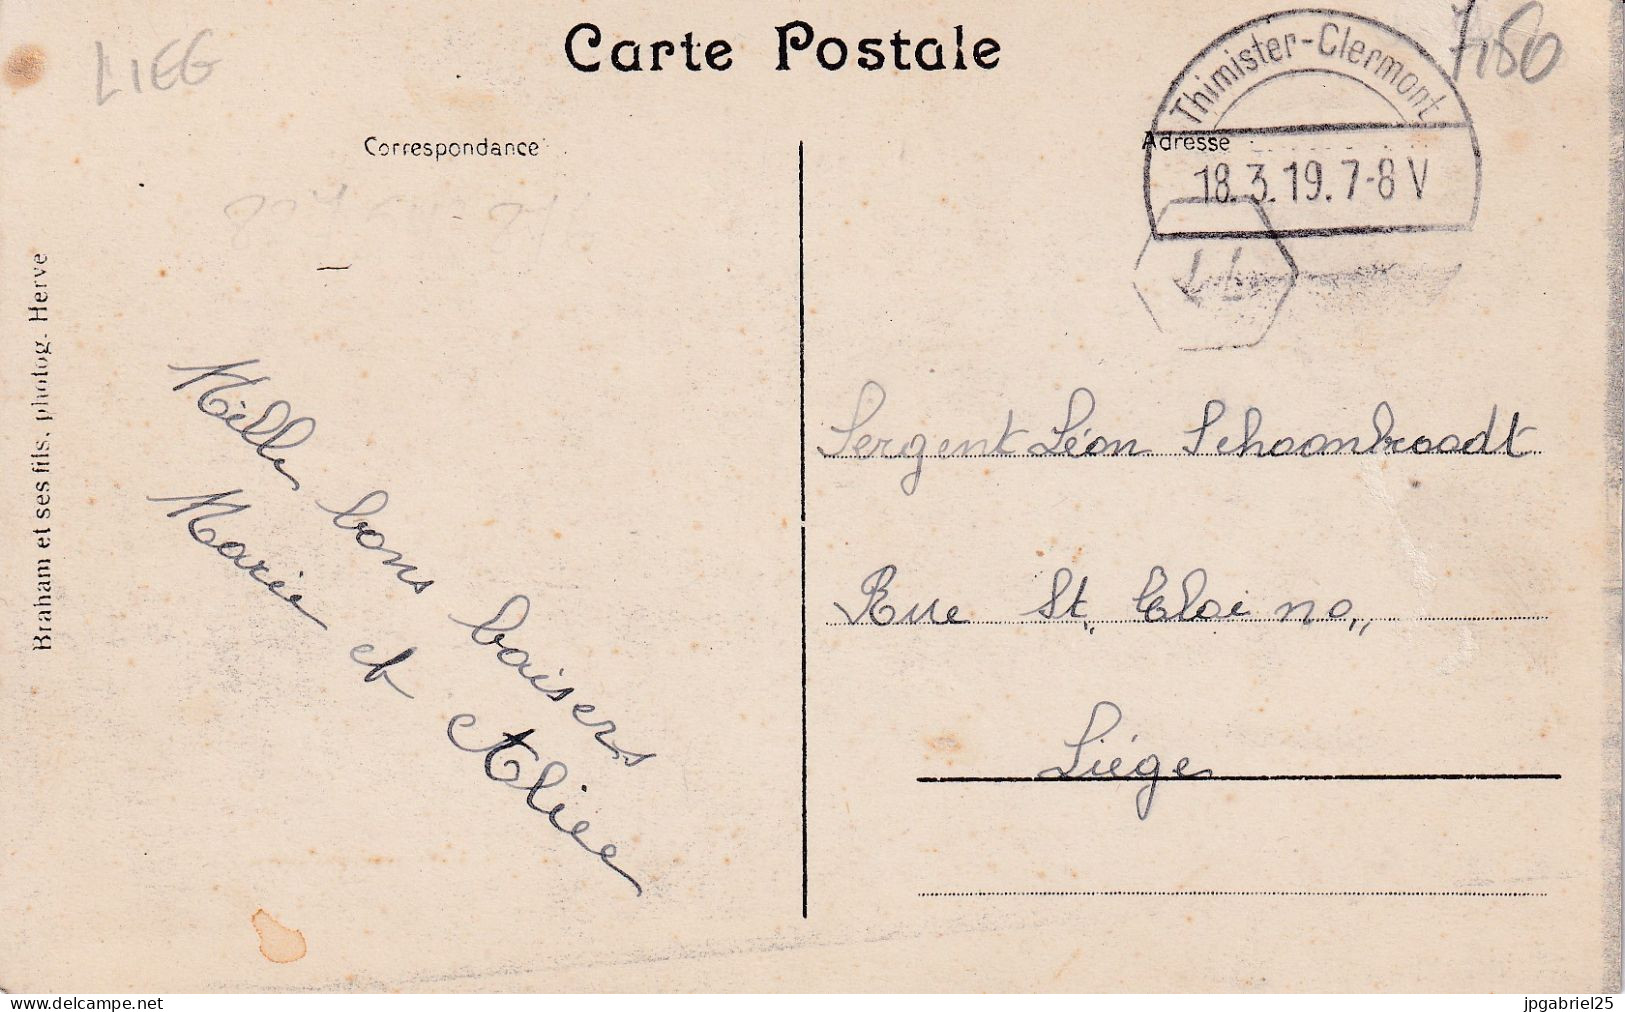 Carte Postale
LIEG
7,80
Thimister-Clermont
18.3.19.7-8 V
Correspondance
Adresse
Braham et ses fils, photog. Herve
Mille bons baisers
Marie et Alice
Sergent Léon Schoonbroodt
Rue St. Eloi no
Liége
delcampe.net
jpgabriel25